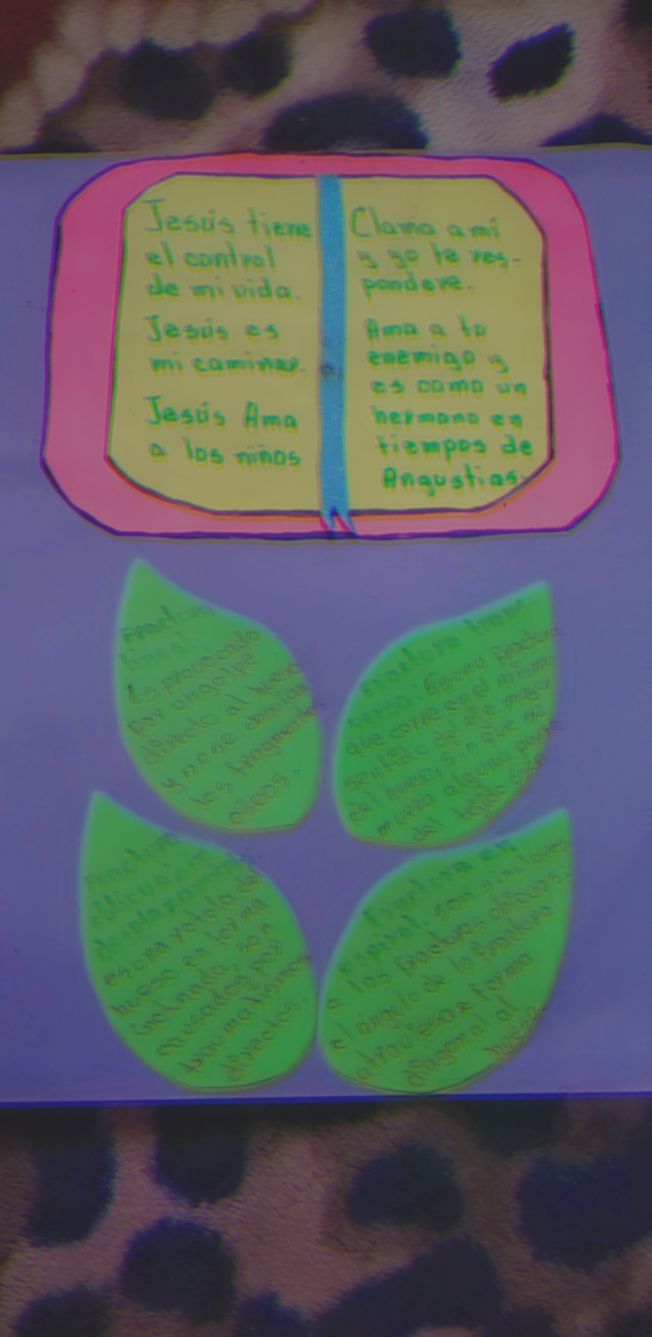 Jesús tiene
el control
de mi vida.
Jesús es
mi caminar.
Jesús Ama
a los niños
Clama a mí
y yo te res-
pondere.
Ama a tu
enemigo y
es como un
hermano en
tiempos de
Angustias.
Fractura
lineal
Es provocado
por un golpe
directo al hueso
y no se desvían
los fragmentos
oseos.
Fractura
Es una fractura
que corre en el mismo
sentido del eje mayor
del hueso, sin que se
mueva alguna parte
del tejido
Fractura
oblicua sin
desplazamiento.
es una rotula de
hueso en forma
inclinada, son
causados por
traumatismos
directos.
Fractura en
Espiral son similares
a las fracturas oblicuas.
el ángelo de la fractura
atraviesa a forma
diagonal al
hueso.